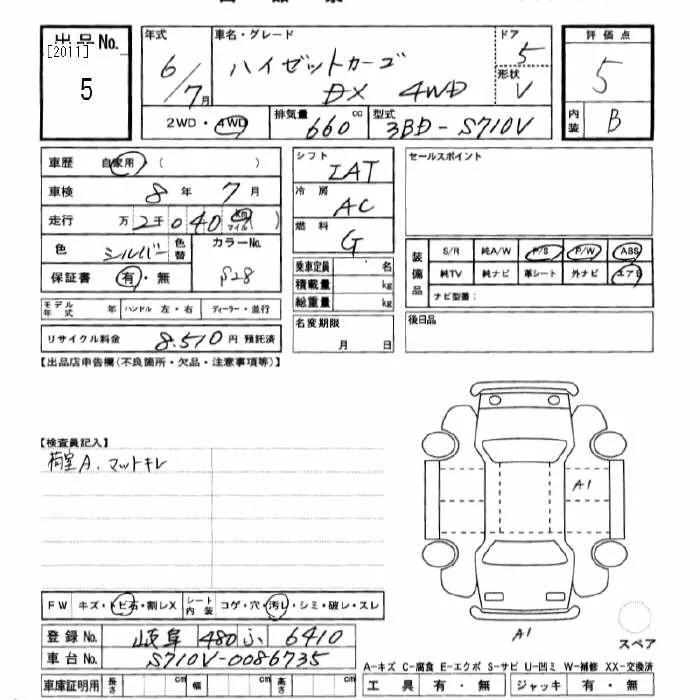 出品No. [2011] 5
年式 6/7月
車名・グレード ハイゼットカーゴ DX 4WD
ドア 5
形状 V
評価点 5
内装 B
2WD・4WD
排気量 660 cc
型式 3BD-S710V
車歴 自家用 ( )
車検 8年 7月
走行 2万 2千 040 マイル
色 シルバー 色替
カラーNo. S28
保証書 有・無
モデル年式 年 ハンドル 左・右 ディーラー・並行
リサイクル料金 8.510 円 預託済
シフト IAT
冷房 AC
燃料 G
乗車定員 名
積載量 kg
総重量 kg
名変期限 月 日
セールスポイント
装備品 S/R 純A/W P/S P/W ABS
純TV 純ナビ 革シート 外ナビ エアB
ナビ型番:
後日品
【出品店申告欄(不良箇所・欠品・注意事項等)】
【検査員記入】
荷室A. マットキレ
A1
A1
FW キズ・トビ石・割レX シート内装 コゲ・穴・汚レ・シミ・破レ・スレ
登録No. 岐阜 480 ふ 6410
車台No. S710V-0086735
車庫証明用 長さ cm 幅 cm 高さ cm
スペア
A-キズ C-腐食 E-エクボ S-サビ U-凹ミ W-補修 XX-交換済
工具 有・無 ジャッキ 有・無